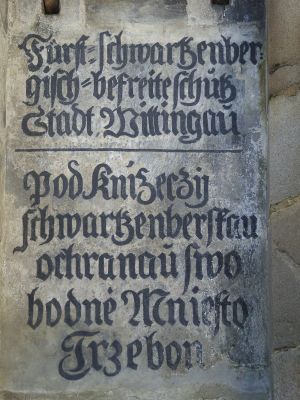 Fürst-schwartzenber-
gisch-befreite schutz
Stadt Wittingau
Pod Knížeczij
schwartzenberskau
ochranaú swo
bodné Mniesto
Trzebon